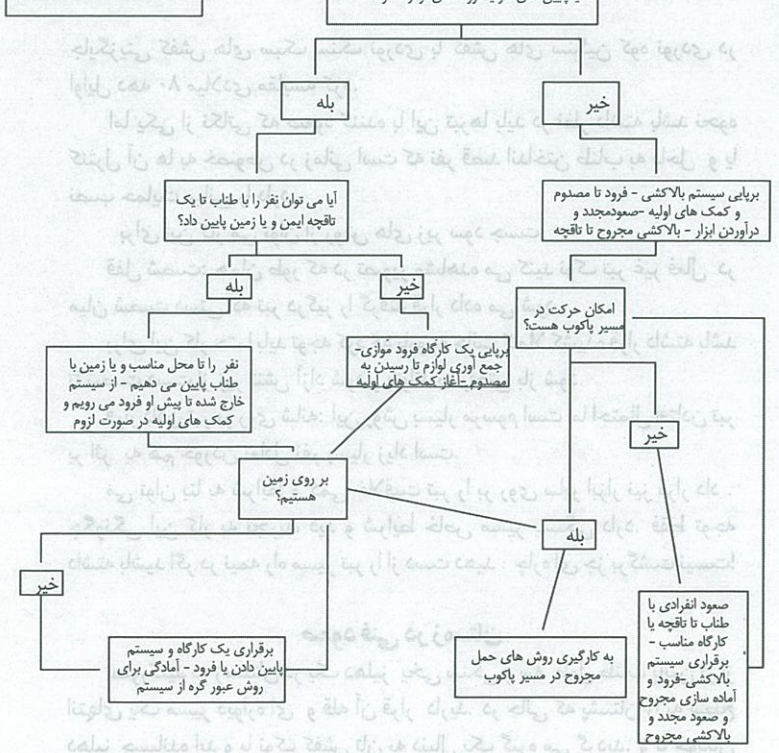 بله
خیر
آیا می توان نفر را با طناب تا یک
تاقچه ایمن و یا زمین پایین داد؟
برپایی سیستم بالاکشی - فرود تا مصدوم
و کمک های اولیه -صعودمجدد و
درآوردن ابزار - بالاکشی مجروح تا تاقچه
بله
خیر
امکان حرکت در
مسیر پاکوب هست؟
نفر را تا محل مناسب و یا زمین با
طناب پایین می دهیم - از سیستم
خارج شده تا پیش او فرود می رویم و
کمک های اولیه در صورت لزوم
برپایی یک کارگاه فرود موازی-
جمع آوری لوازم تا رسیدن به
مصدوم -آغاز کمک های اولیه
خیر
بر روی زمین
هستیم؟
بله
خیر
برقراری یک کارگاه و سیستم
پایین دادن یا فرود - آمادگی برای
روش عبور گره از سیستم
به کارگیری روش های حمل
مجروح در مسیر پاکوب
صعود انفرادی با
طناب تا تاقچه یا
کارگاه مناسب -
برقراری سیستم
بالاکشی-فرود و
آماده سازی مجروح
و صعود مجدد و
بالاکشی مجروح